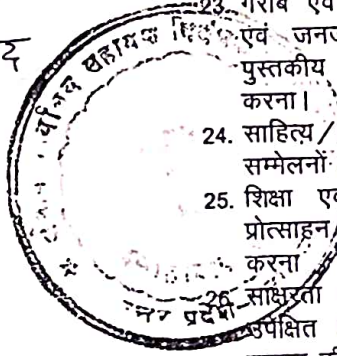 23. गरीब एवं
एवं जनज
पुस्तकीय
करना।
24. साहित्य/
सम्मेलनों
25. शिक्षा एवं
प्रोत्साहन/
करना
26. साक्षरता
उपेक्षित
सहायक
उत्तर प्रदेश